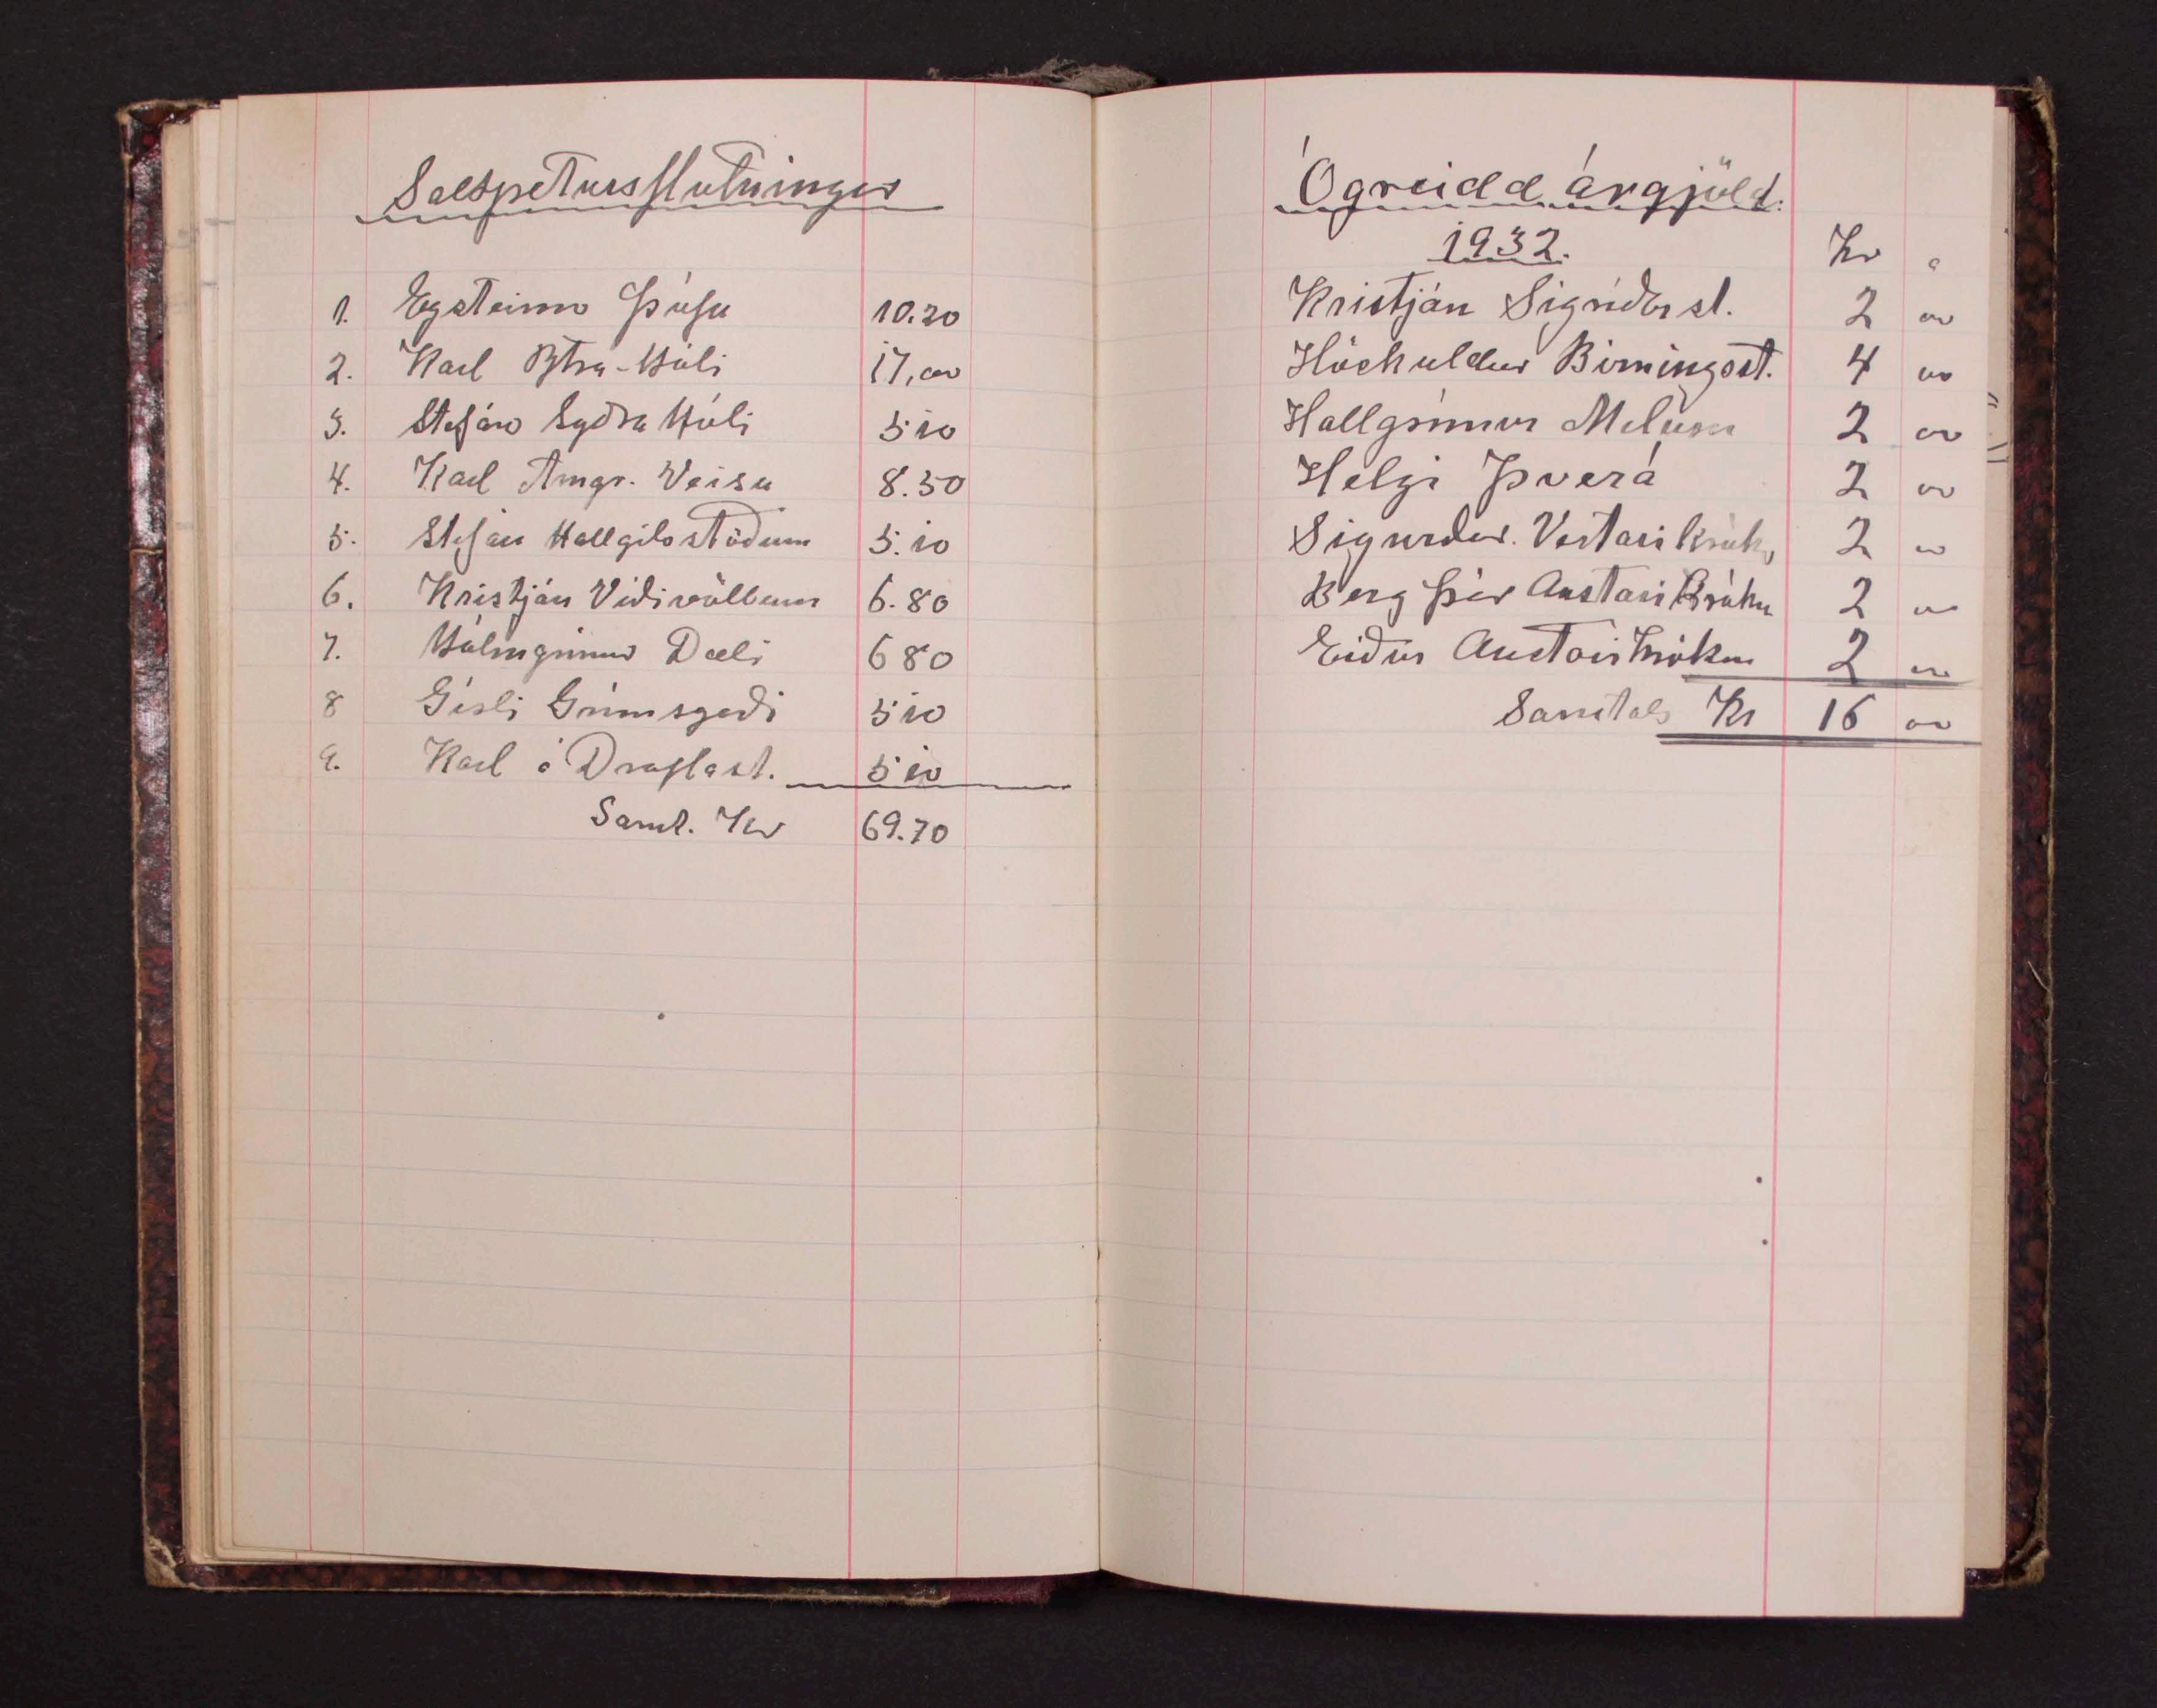 Saltpétursflutningur
1. Eysteinn Þúfu 10.20
2. Karl Ytra-Hóli 17,00
3. Stefán Syðra Hóli 5 10
4. Karl Arngr. Veisu 8.50
5. Stefán Hallgilsstöðum 5.10
6. Kristján Vidivöllum 6.80
7. Hólmgrímur Dæli 6 80
8 Gísli Grímsgerði 5 10
9. Karl á Draflast. 5 10
Samt. Kr 69.70
Ógreidd árgjöld.
1932.
Kr a
Kristján Sigríðarst. 2 00
Höskuldur Birningsst. 4 00
Hallgrímur Melum 2 00
Helgi Þverá 2 00
Sigurdur. Vestari Krók. 2 00
Bergþór Austari Króku 2 00
Eiður Austari Krókum 2 00
Samtals Kr 16 00